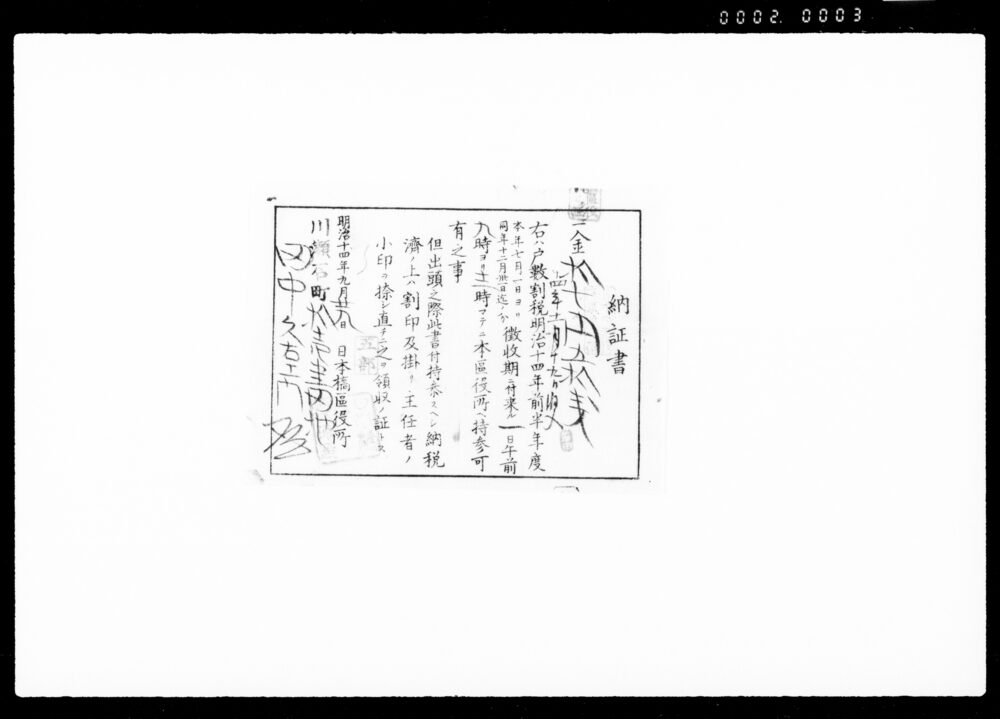 0002. 0003
納証書
一金拾七円五拾銭
右ハ戸數割税明治十四年前半年度
本年七月一日ヨリ
同年十二月卅一日迄ノ分
徴收期ニ付来ル 一日午前
九時ヨリ十二時マテニ本區役所ヘ持参可
有之事
但出頭之際此書付持参スヘシ納税
濟ノ上ハ割印及掛リ主任者ノ
小印ヲ捺シ直チニ之ヲ領収ノ証トス
明治十四年九月廿九日 日本橋區役所
川瀬石町拾壱番地
田中久右エ門